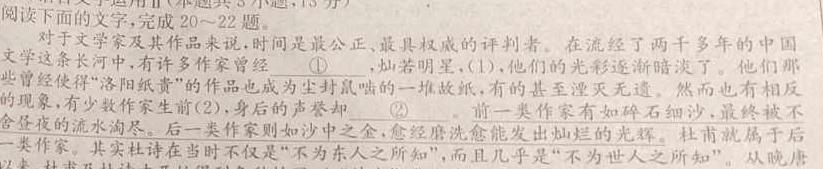 阅读下面的文字,完成 20～22 题。
对于文学家及其作品来说,时间是最公正、最具权威的评判者。在流经了两千多年的中国
文学这条长河中,有许多作家曾经 ① ,灿若明星,(1),他们的光彩逐渐暗淡了。他们那
些曾经使得“洛阳纸贵”的作品也成为尘封鼠啮的一堆故纸,有的甚至湮灭无遗。然而也有相反
的现象,有少数作家生前(2),身后的声誉却 ② 。前一类作家有如碎石细沙,最终被不
舍昼夜的流水淘尽。后一类作家则如沙中之金,愈经磨洗愈能发出灿烂的光辉。杜甫就属于后
一类作家。其实杜诗在当时不仅是“不为东人之所知”,而且几乎是“不为世人之所知”。从晚唐